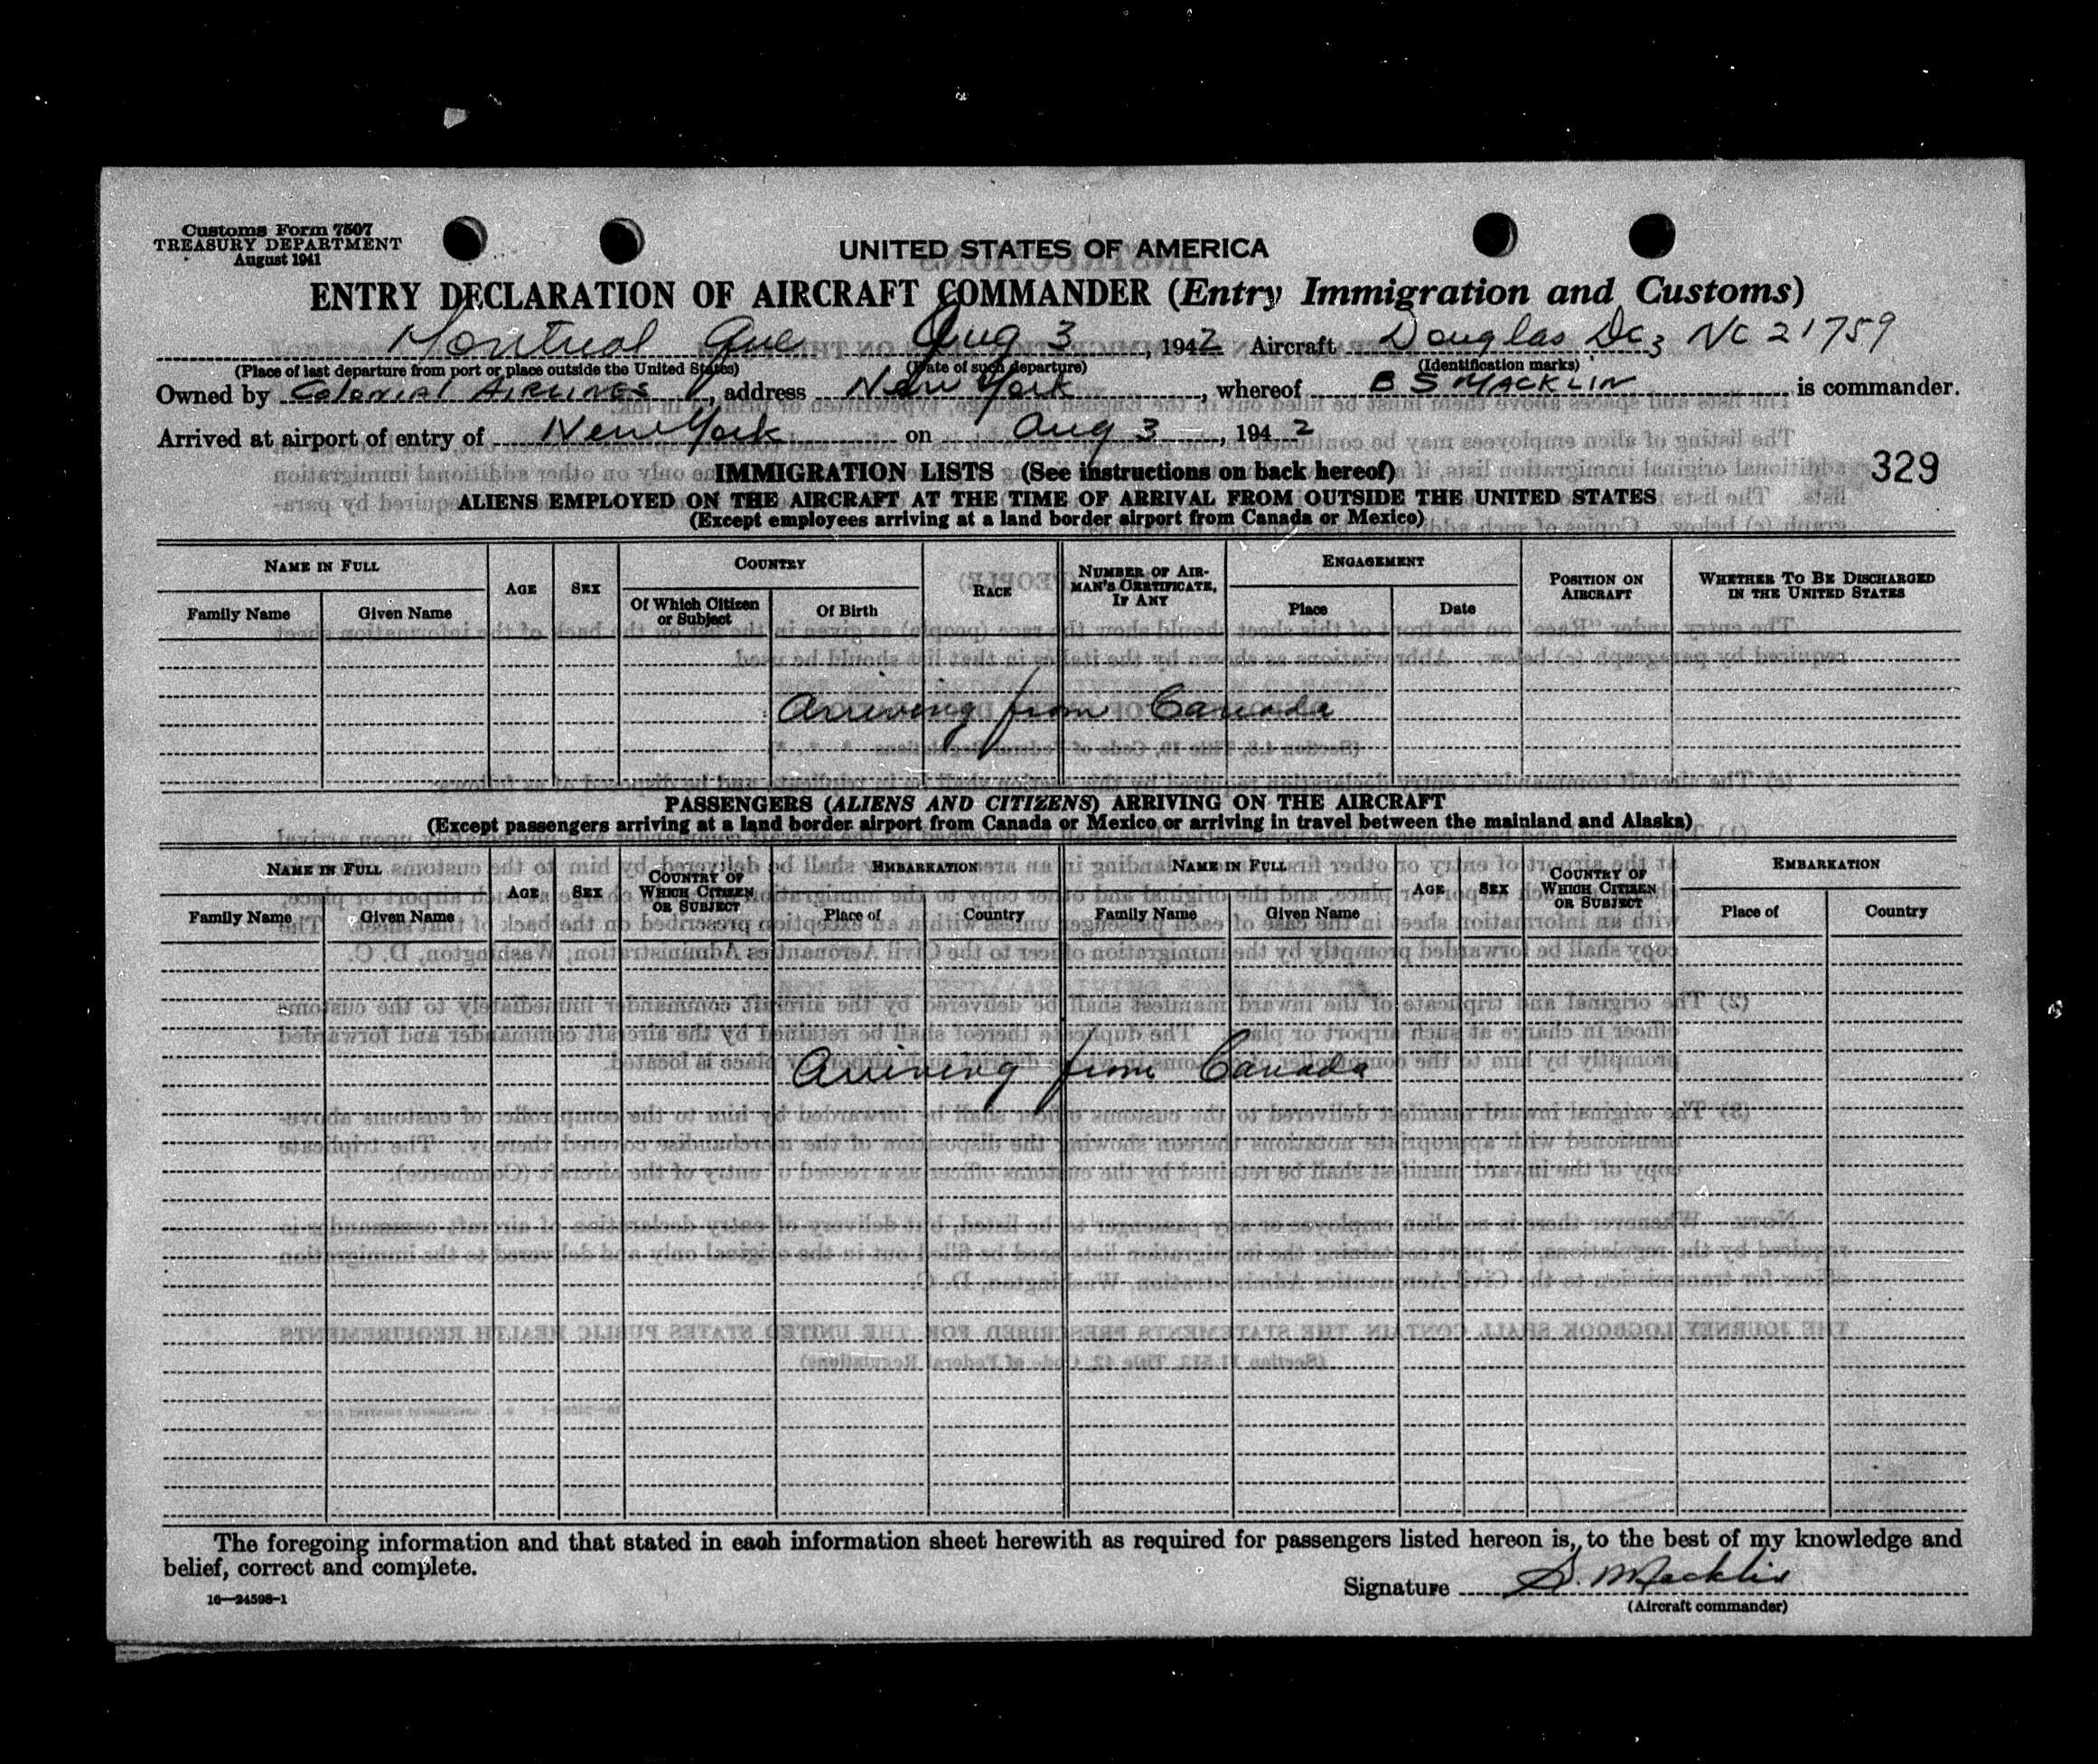 Customs Form 7507
TREASURY DEPARTMENT
August 1941
UNITED STATES OF AMERICA
ENTRY DECLARATION OF AIRCRAFT COMMANDER (Entry Immigration and Customs)
Montreal Que Aug 3, 1942 Aircraft Douglas Dc3 NC 21759
(Place of last departure from port or place outside the United States) (Date of such departure) (Identification marks)
Owned by COLONIAL AIRLINES, address New York, whereof B S MACKLIN is commander.
Arrived at airport of entry of New York on Aug 3, 1942
IMMIGRATION LISTS (See instructions on back hereof)
329
ALIENS EMPLOYED ON THE AIRCRAFT AT THE TIME OF ARRIVAL FROM OUTSIDE THE UNITED STATES
(Except employees arriving at a land border airport from Canada or Mexico)
NAME IN FULL AGE SEX COUNTRY RACE NUMBER OF AIRMAN'S CERTIFICATE, IF ANY ENGAGEMENT POSITION ON AIRCRAFT WHETHER TO BE DISCHARGED IN THE UNITED STATES
Family Name Given Name Of Which Citizen or Subject Of Birth Place Date
Arriving from Canada
PASSENGERS (ALIENS AND CITIZENS) ARRIVING ON THE AIRCRAFT
(Except passengers arriving at a land border airport from Canada or Mexico or arriving in travel between the mainland and Alaska)
NAME IN FULL AGE SEX COUNTRY OF WHICH CITIZEN OR SUBJECT EMBARKATION NAME IN FULL AGE SEX COUNTRY OF WHICH CITIZEN OR SUBJECT EMBARKATION
Family Name Given Name Place of Country Family Name Given Name Place of Country
Arriving from Canada
The foregoing information and that stated in each information sheet herewith as required for passengers listed hereon is, to the best of my knowledge and
belief, correct and complete.
Signature S. Macklin
(Aircraft commander)
16—24598-1